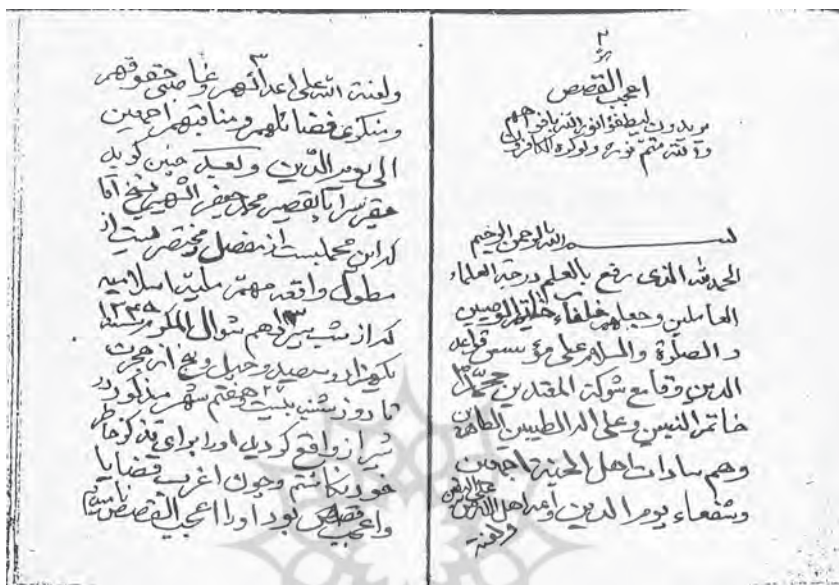 ۲
اعجب القصص
یریدون لیطفؤا نور الله بافواههم
والله متمّ نوره ولوکره الکافرون
بسم الله الرحمن الرحیم
الحمد لله الذی رفع بالعلم درجة العلماء
العاملین وجعلهم خلفاء خاتم الوصیین
و الصلوة والسلام علی مؤسس قواعد
الدین وقامع شوکة المعتدین محمّد
خاتم النبیین وعلی اله الطیبین الطاهرین
وهم سادات اهل الجنة اجمعین
وشفعاء یوم الدین
ولعنة
۳
ولعنة الله علی اعدائهم وغاصبی حقوقهم
ومنکری فضائلهم ومناقبهم اجمعین
الی یوم الدین وبعد چنین کوید
حقیر سراپا تقصیر محمد جعفر الشهیر بشیخ آقا
که این مجملیست از مفصل ومختصریست از
مطول واقعه مهمّه ملیّه اسلامیه
که از شب سیزدهم ۱۳ شوال المکرم
یکهزار و سیصد و چهل و پنج از هجرت
تا روز شنبه بیست وهفتم ۲۷ شهر مذکور در
شیراز واقع کردید اورا برای تذکر خاطر
خود نکاشتم وچون اغرب قضایا
واعجب قصص بود اورا اعجب القصص نامیدم